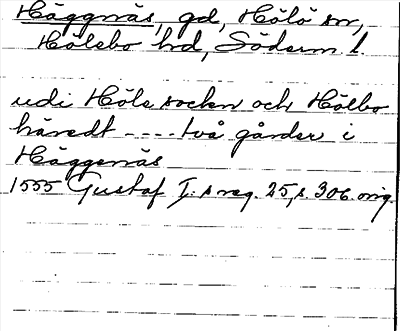 Häggnäs, gd, Hölö sn,
Hölebo hd, Söderm l.
udi Höle socken och Hölbo
häredt - - - - två gårder i
Häggenäs
1555 Gustaf I:s reg. 25, s. 306. orig.